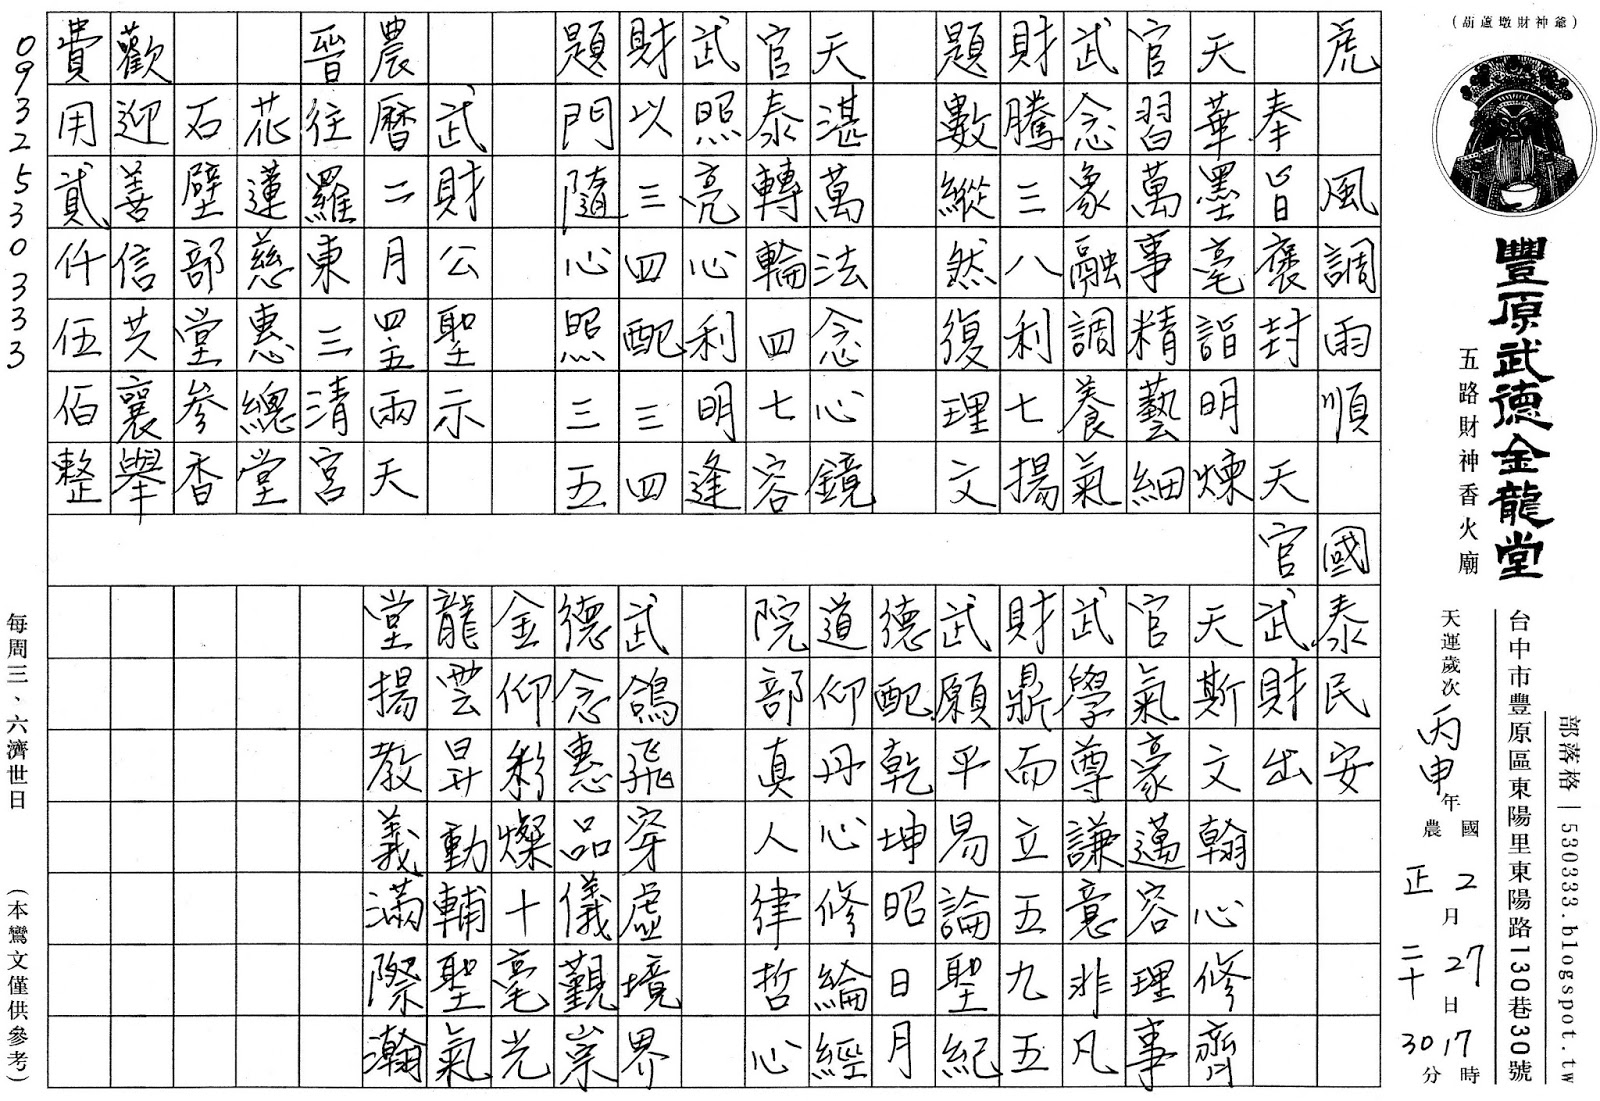 (葫蘆墩財神爺)
豐原武德金龍堂
五路財神香火廟
部落格|530333.blogspot.tw
台中市豐原區東陽里東陽路130巷30號
天運歲次丙申年
國2月27日17時
農正月二十日30分
虎風調雨順國泰民安
奉旨褒封天官武財出
天華墨毫詣明煉
官習萬事精藝細
武念象融調養氣
財騰三八利七揚
題數縱然復理文
天湛萬法念心鏡
官泰轉輪四七容
武照亮心利明逢
財以三四配三四
題門隨心照三五
武財公聖示
農曆二月四、五兩天
晉往羅東三清宮
花蓮慈惠總堂
石壁部堂參香
歡迎善信共襄舉
費用貳仟伍佰整
天斯文翰心修齊
官氣豪邁容理事
武學尊謙意非凡
財鼎而立五九五
武願平易論聖紀
德配乾坤昭日月
道仰丹心修綸經
院部真人律哲心
武鴿飛穿虛境界
德念惠品儀觀崇
金仰彩燦十毫光
龍雲昇動輔聖氣
堂揚教義滿際瀚
0932530333
每周三、六濟世日
(本鸞文僅供參考)